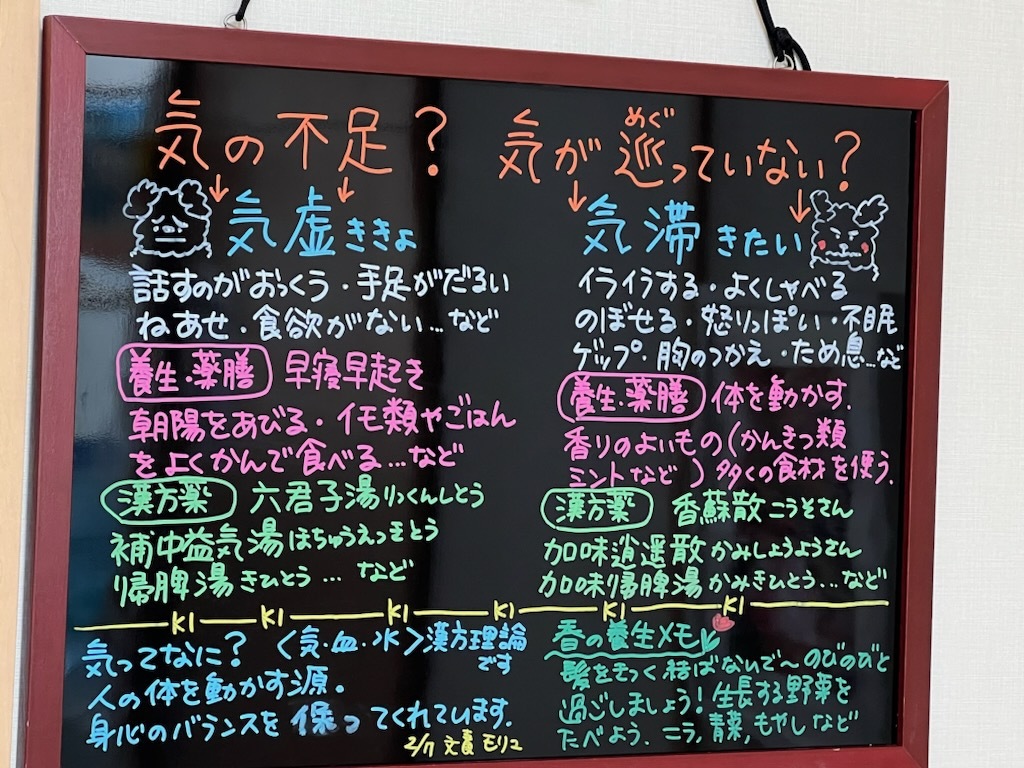 気の不足？
気虚ききょ
話すのがおっくう・手足がだるい
ねあせ・食欲がない…など
養生・薬膳 早寝早起き
朝陽をあびる・イモ類やごはん
をよくかんで食べる…など
漢方薬 六君子湯りっくんしとう
補中益気湯ほちゅうえっきとう
帰脾湯きひとう…など
気が巡っていない？
めぐ
気滞きたい
イライラする・よくしゃべる
のぼせる・怒りっぽい・不眠
ゲップ・胸のつかえ・ため息…など
養生・薬膳 体を動かす.
香りのよいもの(かんきつ類
ミントなど)多くの食材を使う.
漢方薬 香蘇散こうそさん
加味逍遥散かみしょうようさん
加味帰脾湯かみきひとう…など
KI KI KI KI KI KI
気ってなに？〈気・血・水〉漢方理論
です
人の体を動かす源.
身心のバランスを保ってくれています.
2/7 文責 モリユ
春の養生メモ
髪をきつく結ばないで〜のびのびと
過ごしましょう！生長する野菜を
たべよう.ニラ,青菜,もやしなど